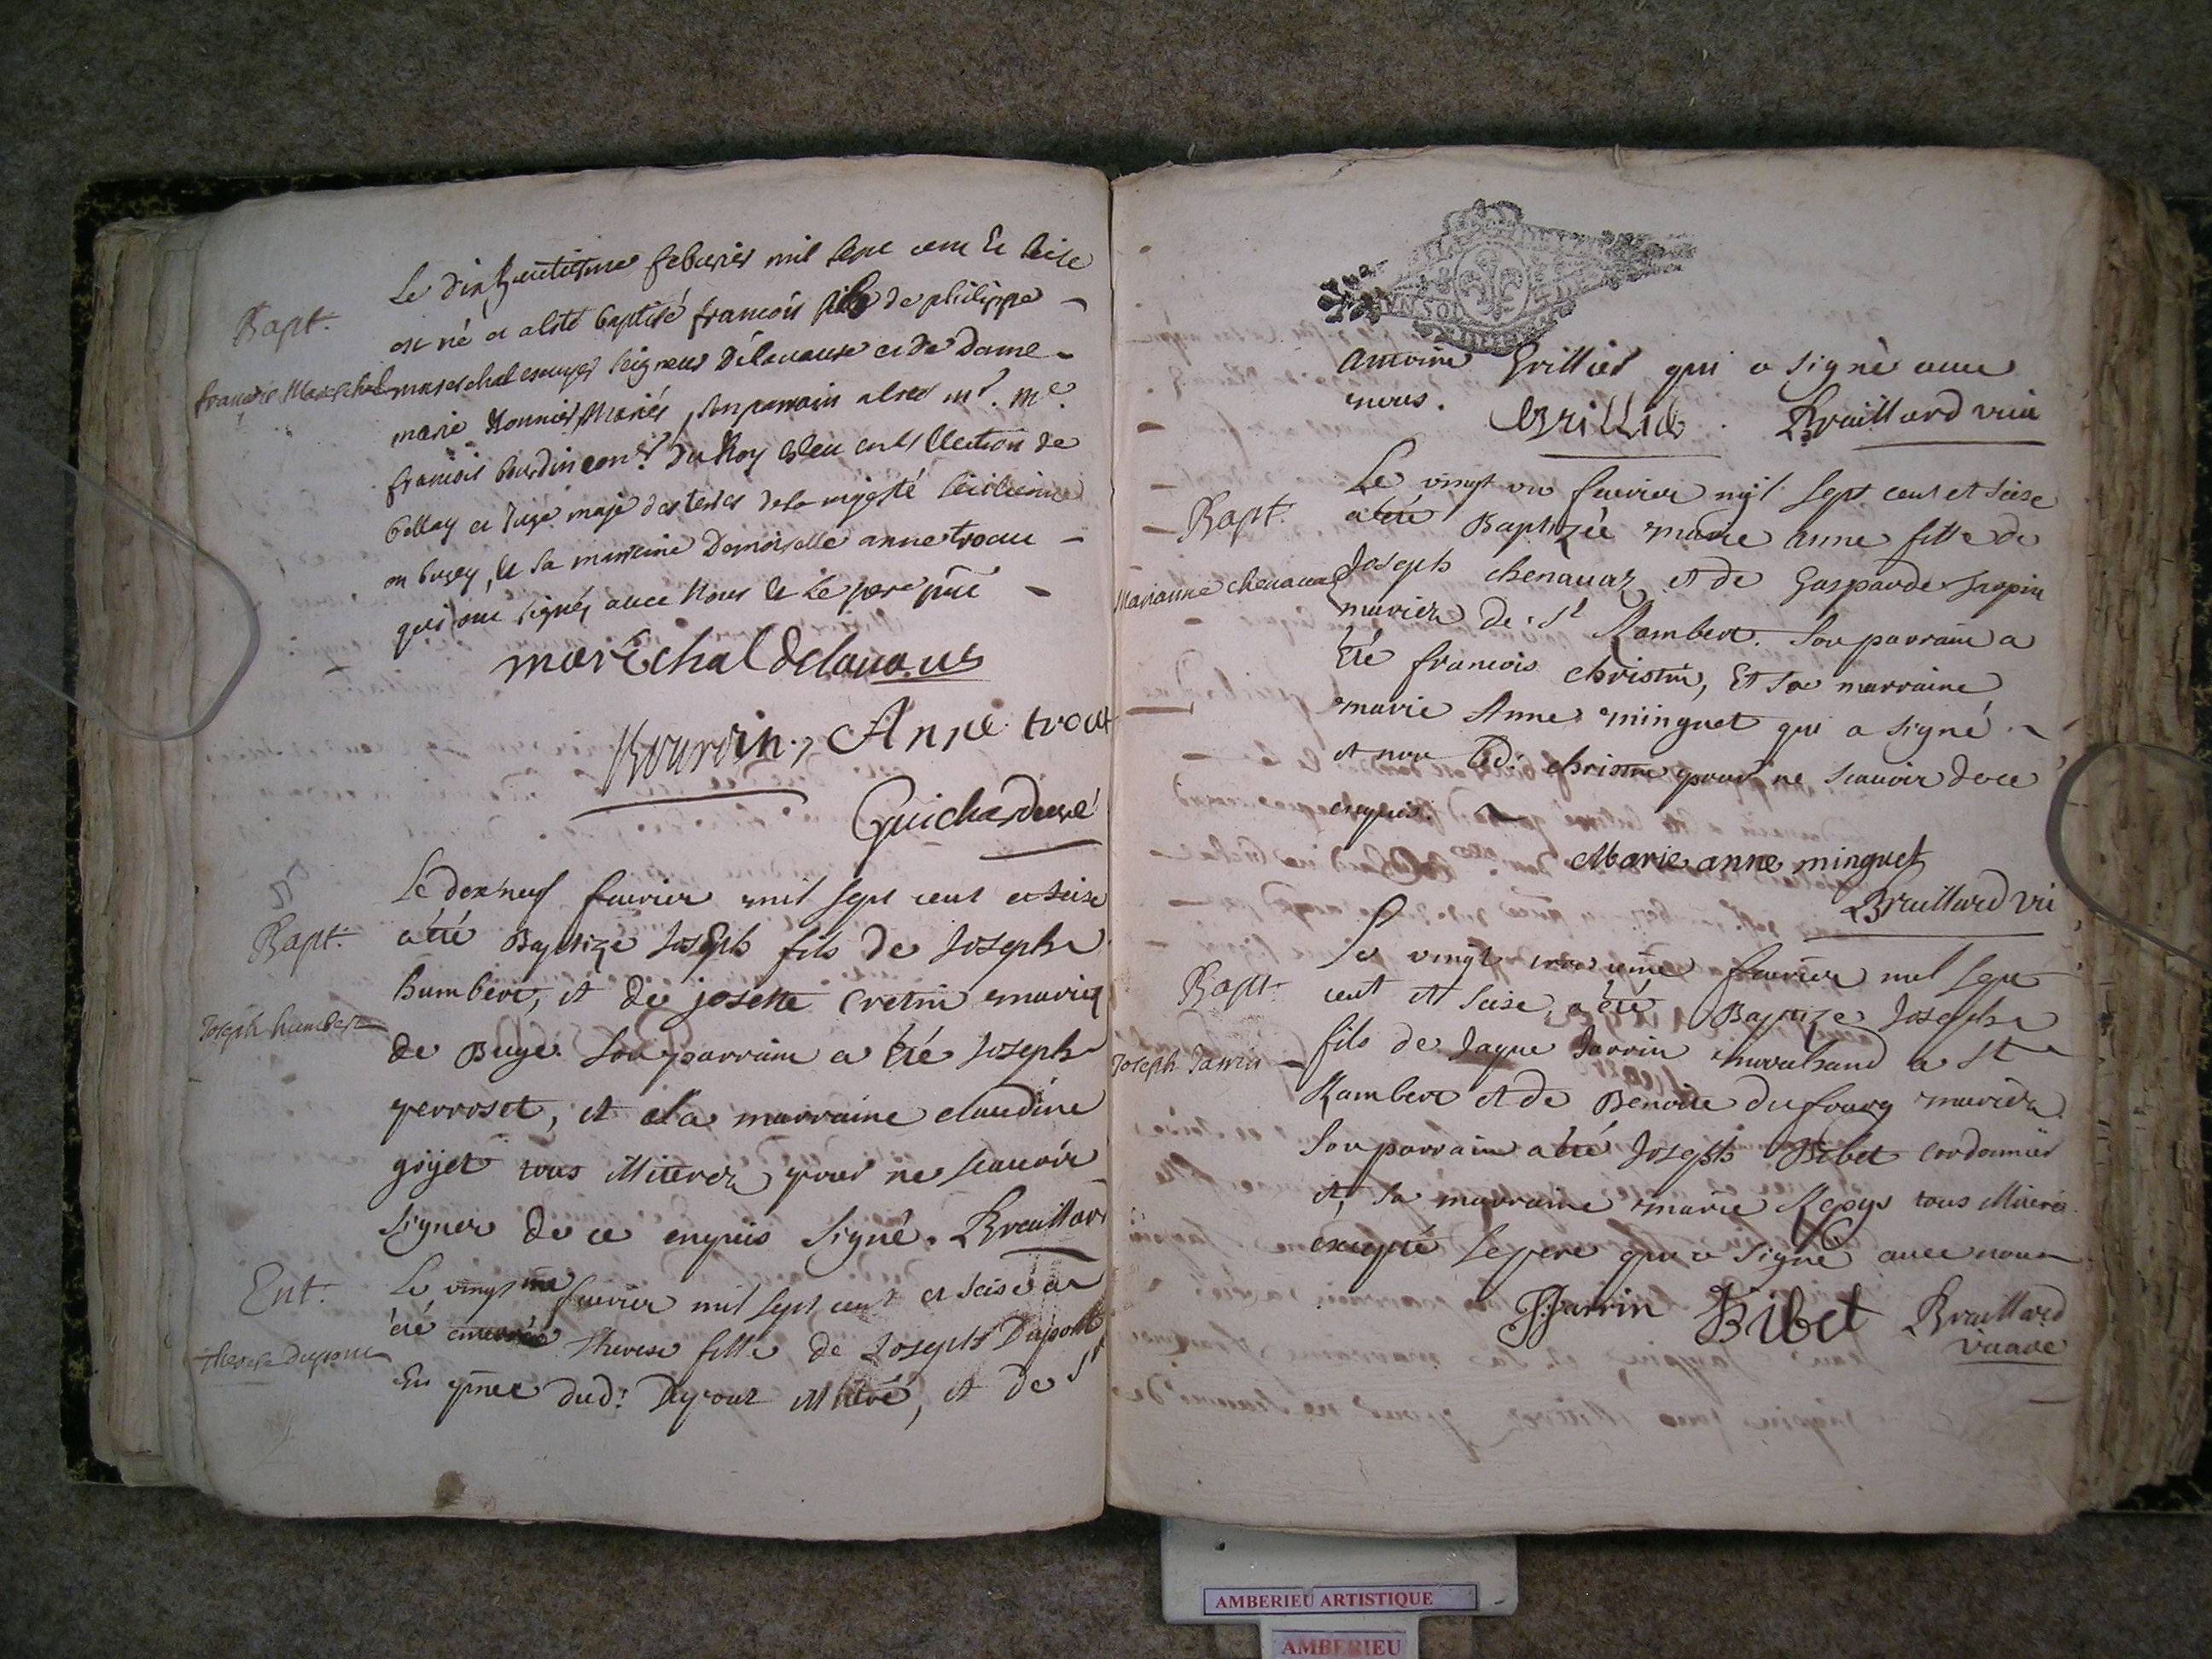 Le dixhuictiesme febvrier mil sept cent et seise
Bapt.
est né et a esté baptisé francois fils de philippe
francois Mareschal
mareschal escuyer seigneur Délavause et de Dame
marie Monnier Mariés, son parrain a esté mr. Me.
francois bourdin conser. Du Roy esleu en l'Election de
bellay et juge maje des terres de sa majesté sicilienne
en bugey, et sa marraine Demoiselle anne trocu
qui ont signés avec Nous et Le pere pnt
marEchal delavaus
Bourdin, Anne trocu
Guichard curé
Le dexneuf fevrier mil sept cent et seise
Bapt.
a été Baptize Joseph fils de Joseph
humbert, et de josette Cretin mariez
Joseph humbert
de Buge. Son parrain a été Joseph
perroset, et sa marraine claudine
gojet tous illiterez pour ne scauoir
signer de ce enquis signé. Braillard
Ent.
Le vingt fevrier mil sept cent et seise a
été enterrée Therese fille de Joseph Dupont
therese Dupont
En pnce dud: Dupont illitéré, et de Sr
VN SOL
Antoine Grillier qui a signé avec
nous.
Grillie Braillard vic
Le vingt un fevrier mil sept cent et seise
Bapt.
a été Baptizée marie Anne fille de
Joseph chenavaz et de Gasparde Jarpin
Marianne chenavaz
mariez de St Rambert. Son parrain a
Eté francois christin, Et sa marraine
marie Anne minguet qui a signé
et non led: christin pour ne scauoir de ce
enquis.
Marie anne minguet
Braillard vic
Le vingt fevrier mil sept
Bapt.
cent et seise, a été Baptize Joseph
fils de Jaque Jarrin marchand a St
Joseph Jarrin
Rambert et de Benoite dufourg mariez.
Son parrain a été Joseph Bibet cordonnier
et sa marraine marie tous illiteré
excepté le pere qui a signé avec nous
J Jarrin Bibet Braillard
vicaire
AMBERIEU ARTISTIQUE
AMBERIEU